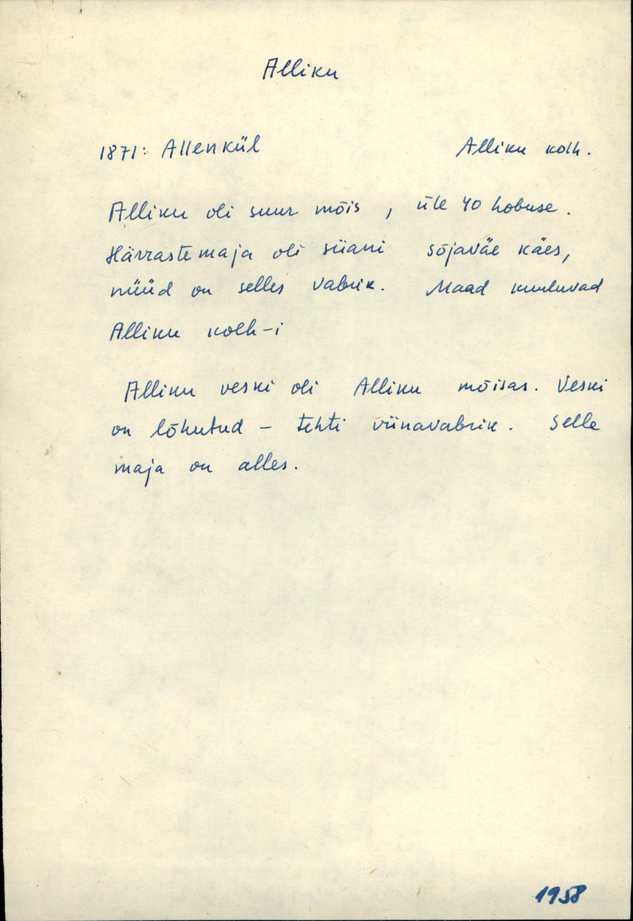 Alliku
1871: Allenkül Alliku kolh.
Alliku oli suur mõis, üle 40 hobuse.
Härrastemaja oli siiani sõjaväe käes,
nüüd on selles vabrik. Maad kuuluvad
Alliku kolh-i
Alliku veski oli Alliku mõisas. Veski
on lõhutud - tehti viinavabrik. Selle
maja on alles.
1958